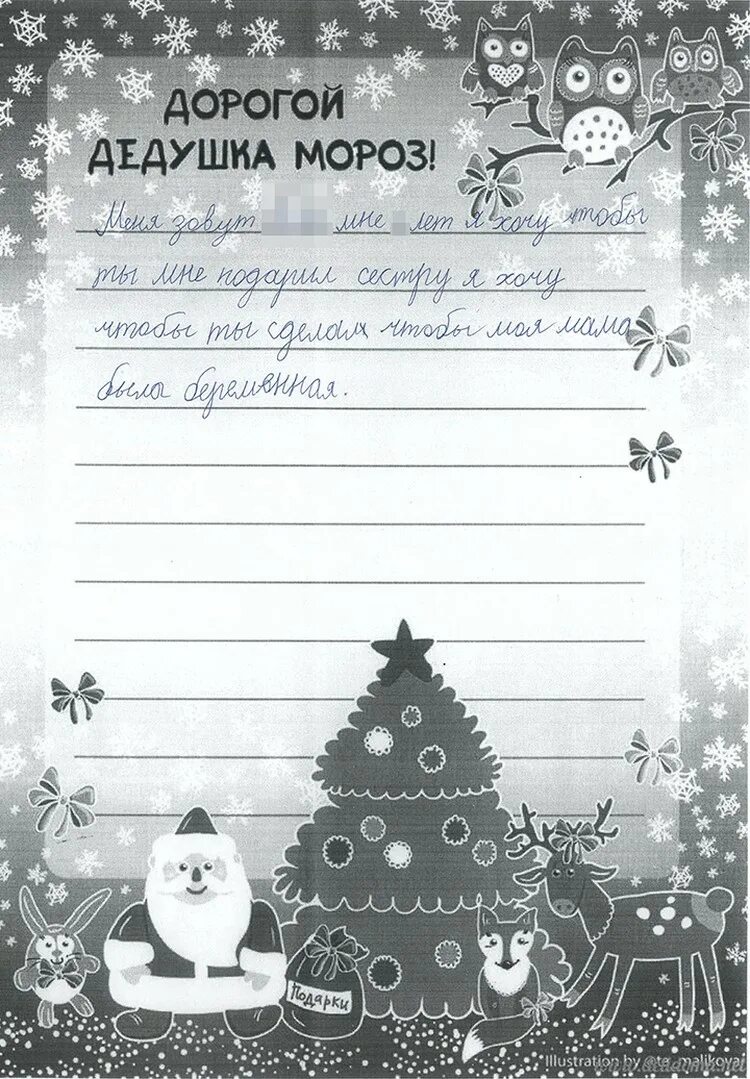 ДОРОГОЙ
ДЕДУШКА МОРОЗ!
Меня зовут мне лет я хочу чтобы
ты мне подарил сестру я хочу
чтобы ты сделал чтобы моя мама
была беременная.
Подарки
Illustration by @te_malikova